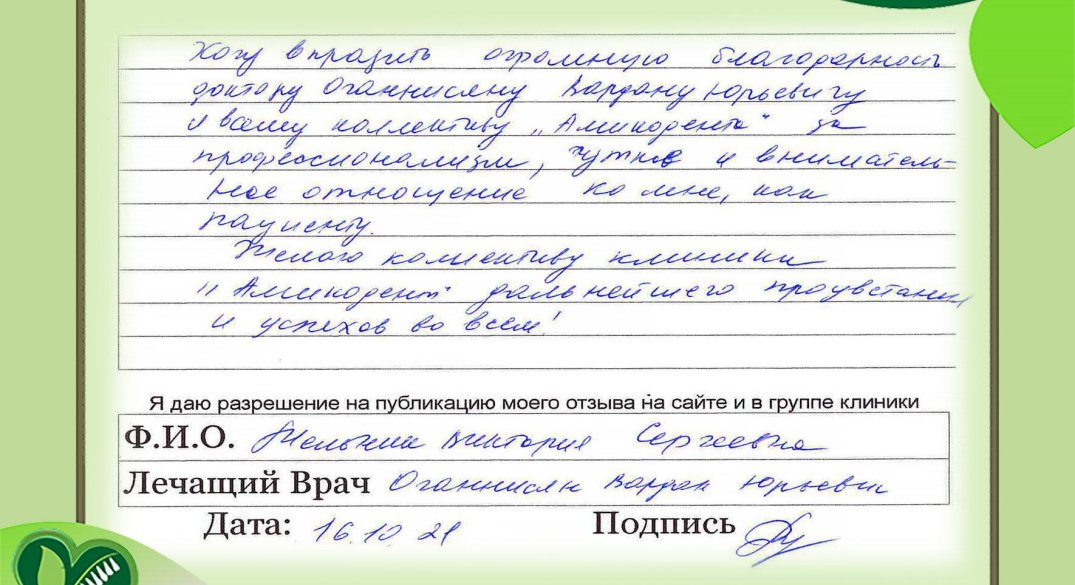 Хочу выразить огромную благодарность
доктору Оганнисяну Вардану Юрьевичу
и всему коллективу „Аминодента" за
профессионализм, чуткое и вниматель-
ное отношение ко мне, как
пациенту.
Желаю коллективу клиники
"Аминодент" дальнейшего процветания
и успехов во всем!
Я даю разрешение на публикацию моего отзыва на сайте и в группе клиники
Ф.И.О. Виктория Сергеевна
Лечащий Врач Оганнисян Вардан Юрьевич
Дата: 16.10.21 Подпись